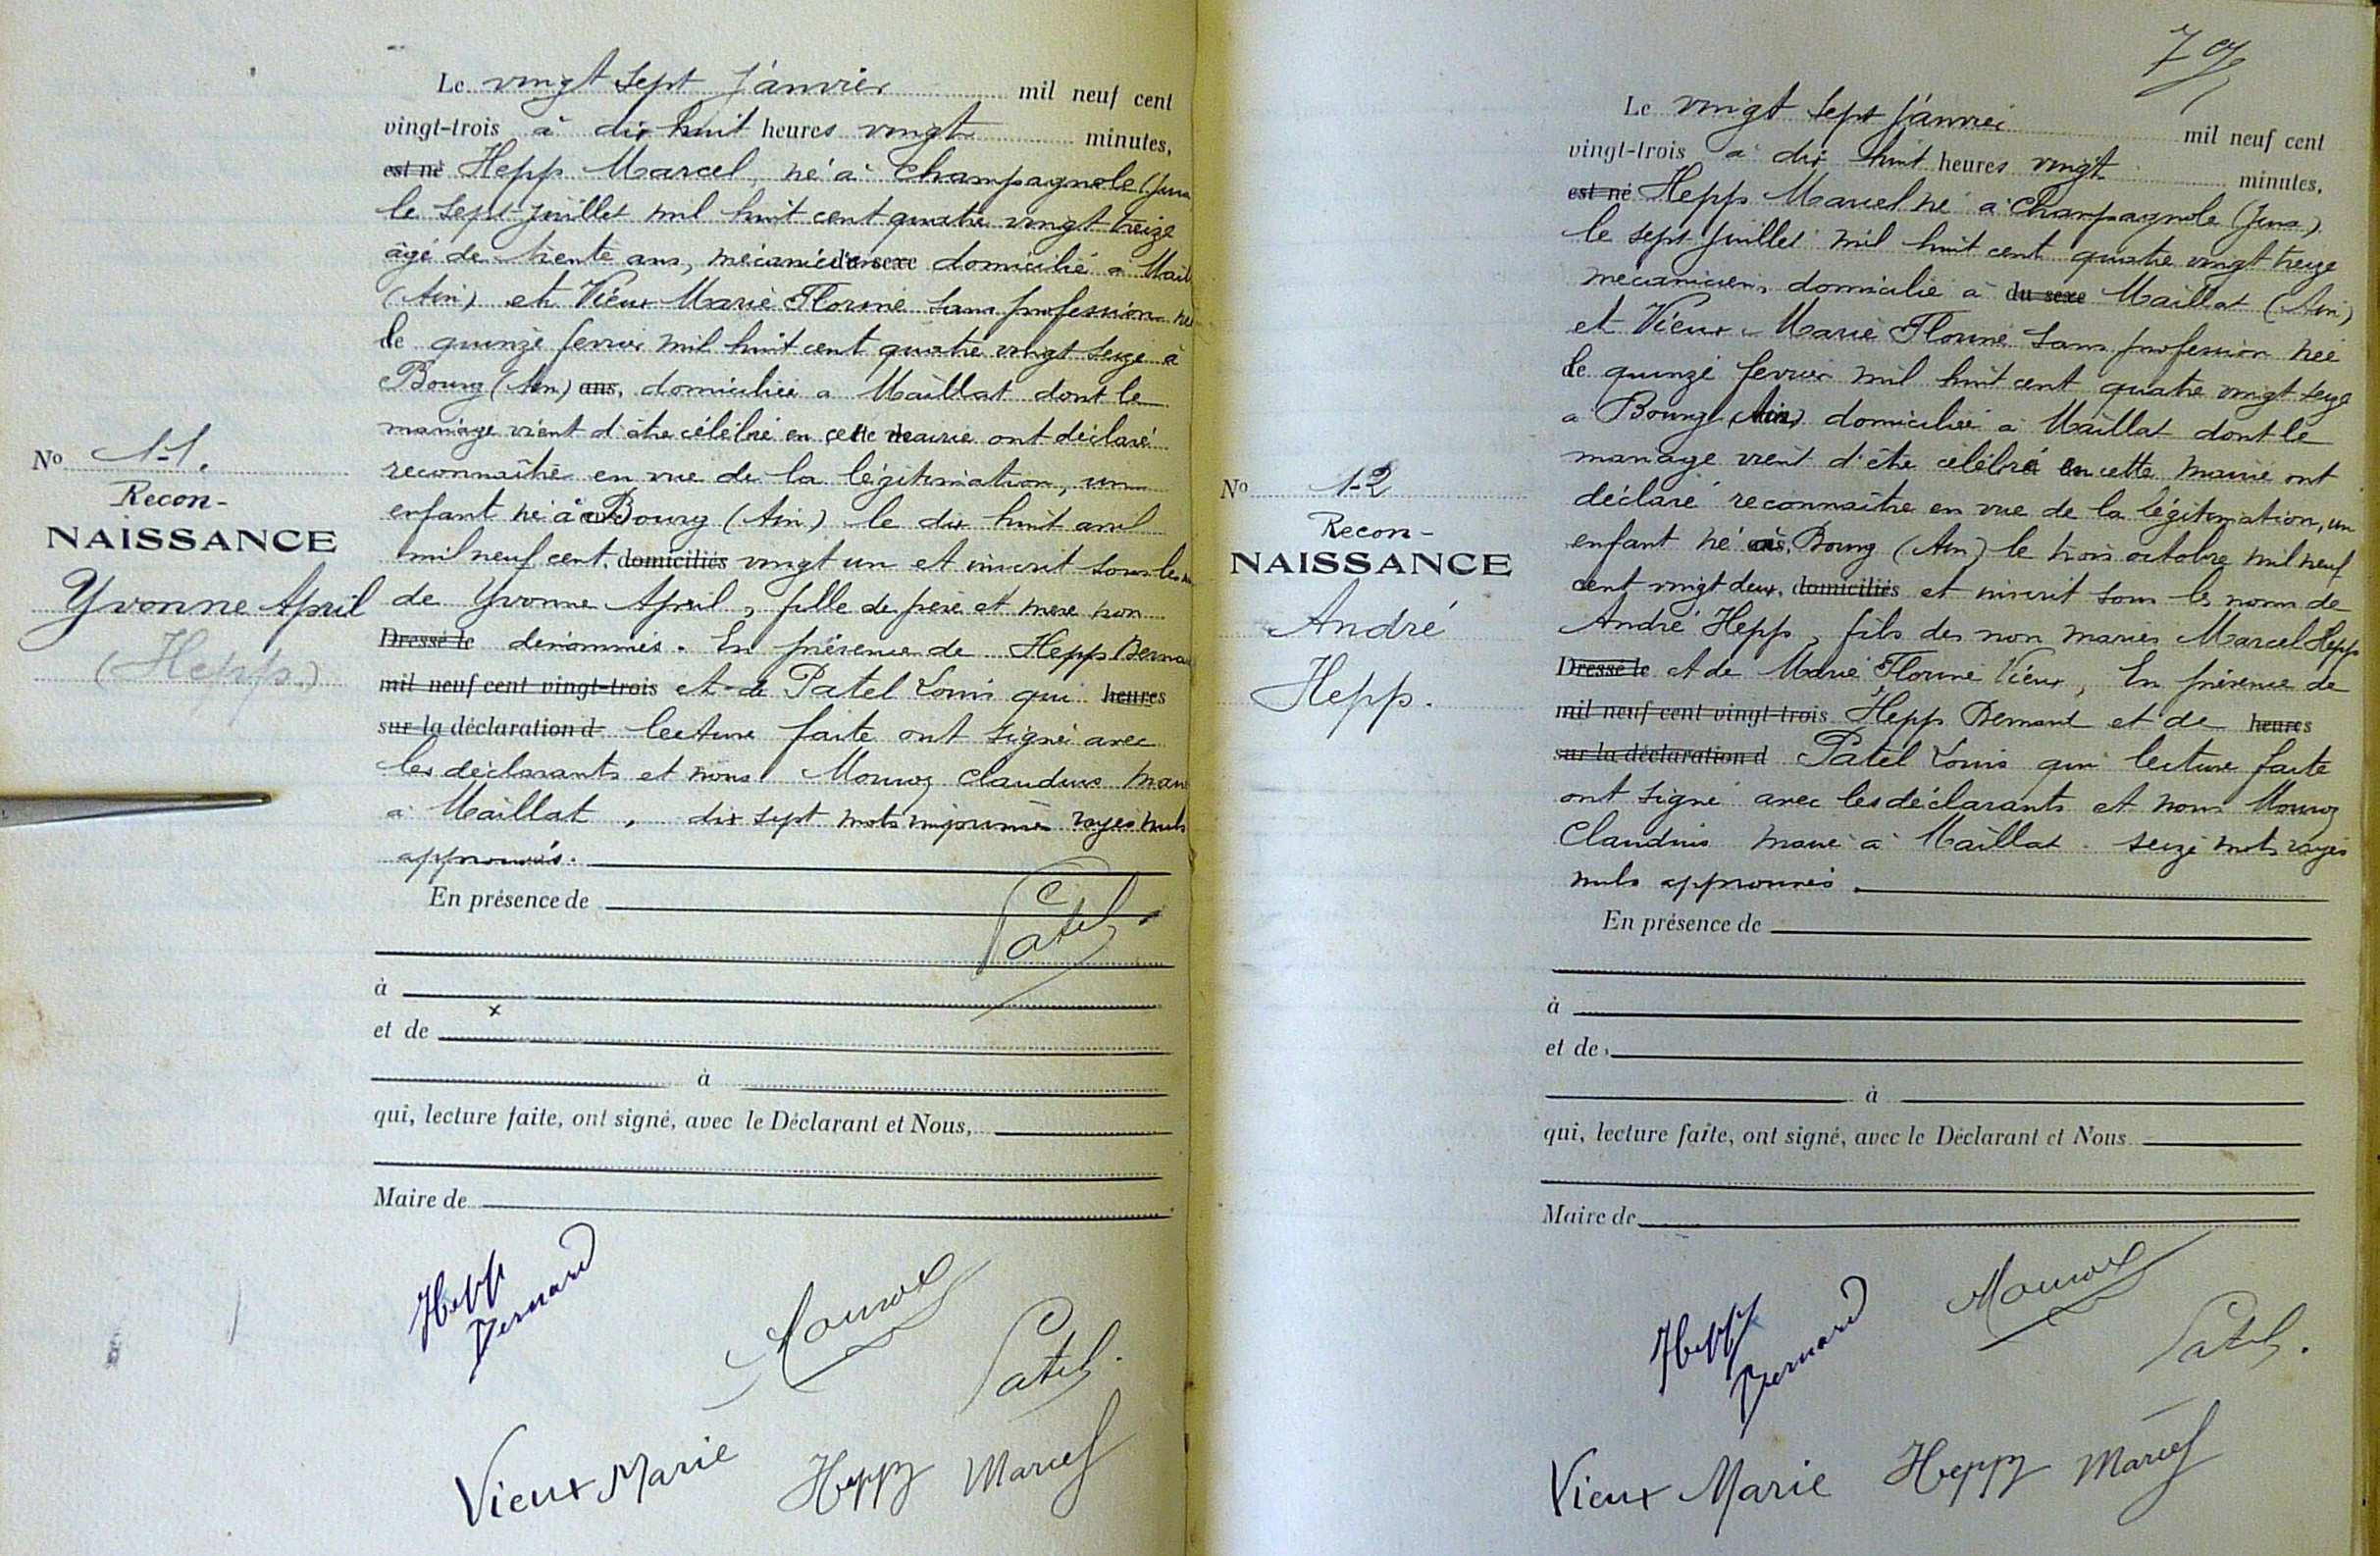 Le vingt sept janvier mil neuf cent
vingt-trois à dix huit heures vingt minutes,
est né Hepp Marcel, né à Champagnole (Jura
le sept juillet mil huit cent quatre vingt treize
âgé de trente ans, mécanicien du sexe domicilié a Mail
(Ain) et Vieux Marie Florine sans profession né
le quinze fevrier mil huit cent quatre vingt seize à
Bourg (Ain) ans, domiciliée a Maillat dont le
mariage vient d'être célébré en cette mairie ont déclaré
reconnaître en vue de la légitimation, un
enfant né à Bourg (Ain) le dix huit avril
mil neuf cent domiciliés vingt un et inscrit sous les
de Yvonne April, fille de père et mère non
Dressé le dénommés. En présence de Hepp Berna
mil neuf cent vingt-trois et de Patel Louis qui heures
sur la déclaration d lecture faite ont signé avec
les déclarants et nous Mouroz Claudius mair
à Maillat, dix sept mots imprimés rayés nuls
approuvés.
En présence de
à
et de
à
qui, lecture faite, ont signé, avec le Déclarant et Nous,
Maire de
Patel
Hepp
Bernard
Mouroz
Patel.
Vieux Marie Hepp Marcel
No 11.
Recon-
NAISSANCE
Yvonne April
(Hepp)
79
Le vingt sept janvier mil neuf cent
vingt-trois à dix huit heures vingt minutes,
est né Hepp Marcel né à Champagnole (Jura)
le sept juillet mil huit cent quatre vingt treize
mécanicien, domicilié à du sexe Maillat (Ain)
et Vieux Marie Florine sans profession née
le quinze fevrier mil huit cent quatre vingt seize
a Bourg (Ain) domiciliée a Maillat dont le
mariage vient d'être célébré en cette mairie ont
déclaré reconnaître en vue de la légitimation, un
enfant né à Bourg (Ain) le trois octobre mil neuf
cent vingt deux, domiciliés et inscrit sous les noms de
André Hepp, fils des non mariés Marcel Hepp
Dressé le et de Marie Florine Vieux, En présence de
mil neuf cent vingt-trois Hepp Bernard et de heures
sur la déclaration d Patel Louis qui lecture faite
ont signé avec les déclarants et nous Mouroz
Claudius maire à Maillat. seize mots rayés
nuls approuvés.
En présence de
à
et de
à
qui, lecture faite, ont signé, avec le Déclarant et Nous
Maire de
Hepp
Bernard
Mouroz
Patel.
Vieux Marie Hepp Marcel
No 12
Recon-
NAISSANCE
André
Hepp.